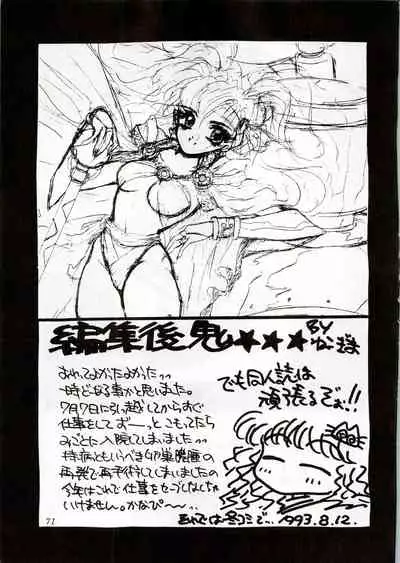 編集後鬼★★★ BY
様
おわってよかったよかった
一時どうなる事かと思いました。
7月7日に引っ越してからおで
仕事をして ずーっと こもってたら
みごとに入院してしまいました
持病ともいうべき卵巣腫瘍の
再発で再手術してしまいましたの
今年はこれで仕事をセーブしなくちゃ
いけません。かなぴ〜〜
でも同人誌は
頑張るぞぉ!!
それでは冬コミで… 1993.8.12.
71